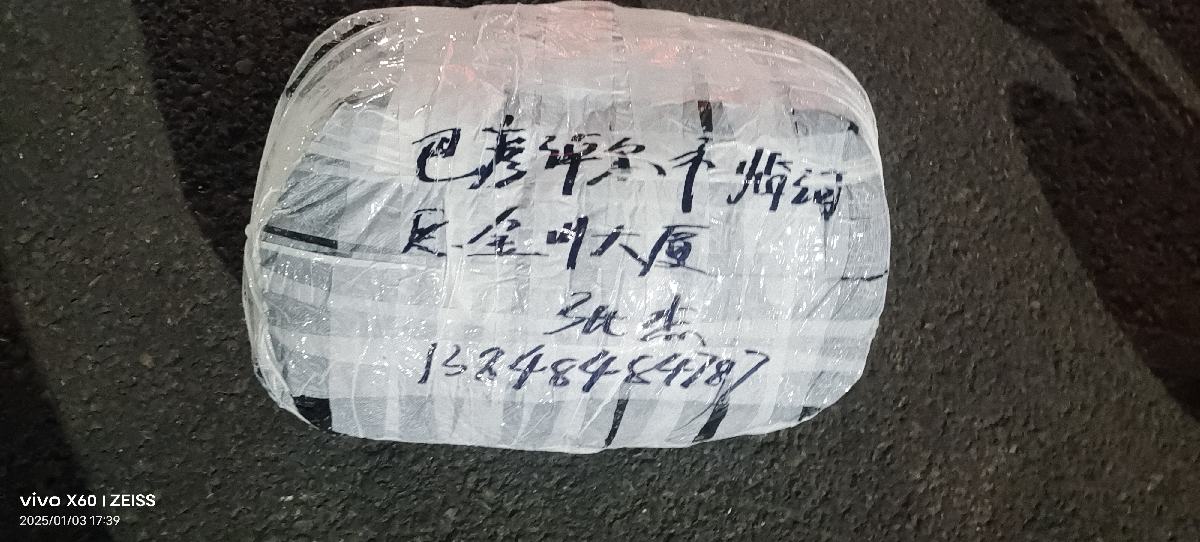 巴彦淖尔市临河
区金川大厦
张杰
13848484787
vivo X60 | ZEISS
2025/01/03 17:39